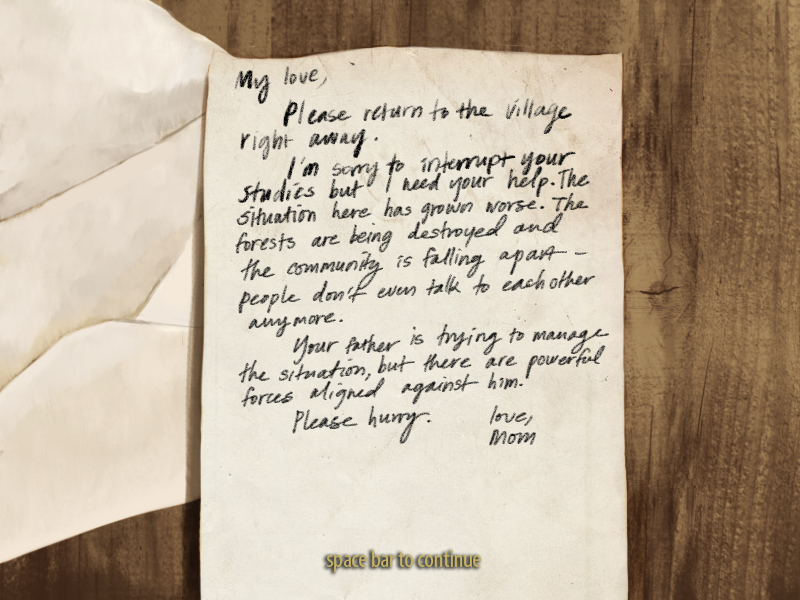 My love,
Please return to the village
right away.
I'm sorry to interrupt your
studies but I need your help. The
situation here has grown worse. The
forests are being destroyed and
the community is falling apart -
people don't even talk to each other
anymore.
Your father is trying to manage
the situation, but there are powerful
forces aligned against him.
Please hurry.
love,
Mom
space bar to continue